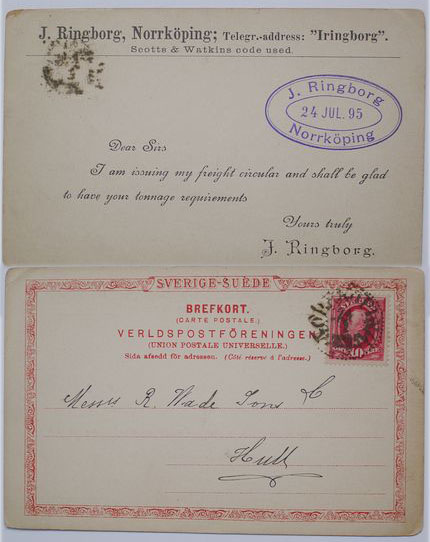 J. Ringborg, Norrköping; Telegr.-address: "Iringborg".
Scotts & Watkins code used.
J. Ringborg
24 JUL. 95
Norrköping
Dear Sirs
I am issuing my freight circular and shall be glad
to have your tonnage requirements
Yours truly
J. Ringborg.
SVERIGE-SUÈDE
BREFKORT.
(CARTE POSTALE.)
VERLDSPOSTFÖRENINGEN
(UNION POSTALE UNIVERSELLE.)
Sida afsedd för adressen. (Côté réservé à l'adresse.)
Messrs R. Wade Sons & C
Hull